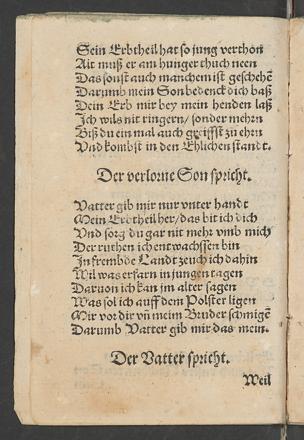 Sein Erbtheil hat so jung verthon
Alt muß er am hunger thuch neen
Das sonst auch manchem ist geschehē
Darumb mein Son bedenck dich baß
Dein Erb mir bey mein henden laß
Ich wils nit ringern / sonder mehrn
Biß du ein mal auch greiffst zu ehrn
Vnd kombst in den Ehlichen standt.
Der verlorne Son spricht.
Vatter gib mir nur vnter handt
Mein Erbtheil her / das bit ich dich
Vnd sorg du gar nit mehr vmb mich
Der ruthen ich entwachssen bin
In frembde Landt zeuch ich dahin
Wil was erfarn in jungen tagen
Daruon ich kan im alter sagen
Was sol ich auff dem Polster ligen
Mir vor dir vñ mein Bruder schmigē
Darumb Vatter gib mir das mein.
Der Vatter spricht.
Weil